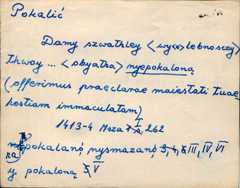 Pokalić
Dany szwathley <wyelebnoscy>
thwoy ... <obyatha> nyepokaloną
(offerimus praeclarae maiestati tuae
hostiam immaculatam)
1413-4 Msza I, 262
nyepokalaną, nyszmazaną III, IV, VI
y pokaloną V